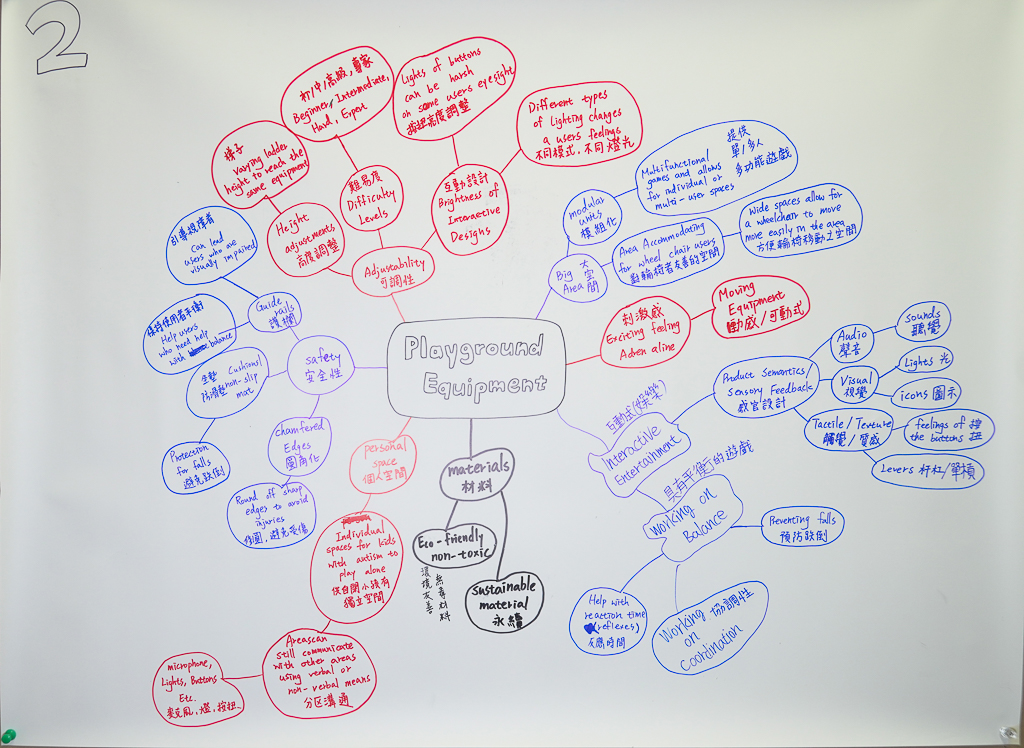 2
Playground
Equipment
Adjustability
可調性
Height
adjustments
高度調整
梯子
varying ladder
height to reach the
same equipment
難易度
Difficulty
Levels
初/中/高級,專家
Beginner, Intermediate,
Hard, Expert
互動設計
Brightness of
Interactive
Designs
Lights of buttons
can be harsh
on some users eyesight
按扭亮度調整
Different types
of Lighting changes
a users feelings
不同模式.不同燈光
Big
Area
大
空
間
modular
units
模組化
提供
單/多人
多功能遊戲
Multifunctional
games and allows
for individual or
multi-user spaces
Area Accommodating
for wheel chair users
對輪椅者友善的空間
Wide spaces allow for
a wheelchair to move
more easily in the area
方便輪椅移動之空間
刺激感
Exciting feeling
Adren aline
Moving
Equipment
動感/可動式
互動式(娛樂)
Interactive
Entertainment
Product Semantics/
Sensory Feedback
感官設計
Audio
聲音
sounds
聽覺
Visual
視覺
Lights 光
icons 圖示
Tactile/Texture
觸覺/質感
feelings of
the buttons
按
扭
Levers 杆杠/單槓
具有平衡的遊戲
Working on
Balance
Preventing falls
預防跌倒
Help with
reaction time
(reflexes)
反應時間
Working 協調性
on
coordination
materials
材料
Eco-friendly
non-toxic
環境友善
無毒材料
sustainable
material
永續
personal
space
個人空間
Individual
spaces for kids
with autism to
play alone
供自閉小孩有
獨立空間
Areascan
still communicate
with other areas
using verbal or
non-verbal means
分区溝通
microphone,
Lights, Buttons
Etc.
麥克風,燈,按扭
safety
安全性
Guide
rails
護欄
引導視障者
Can lead
users who are
visually impaired
使用者平衡
Help users
who need help
with balance
坐墊 Cushions/
防滑墊 non-slip
mat
Protection
for falls
避免跌倒
chamfered
Edges
圓角化
Round off sharp
edges to avoid
injuries
圓,避免受傷